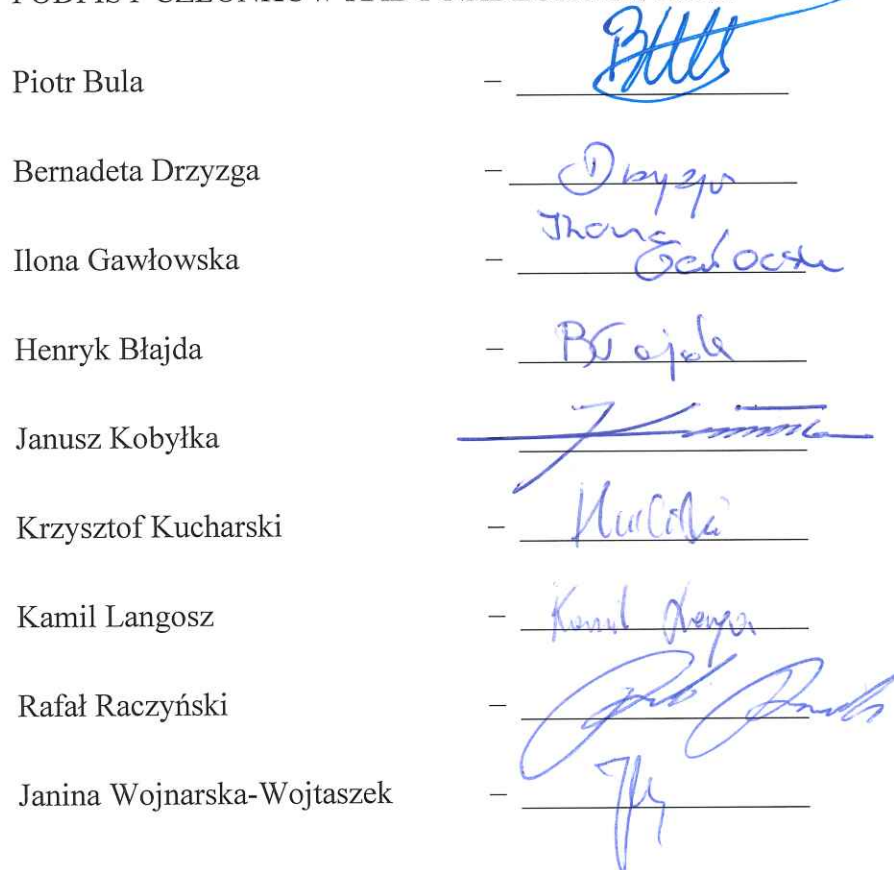 PODPISY CZŁONKÓW
Piotr Bula –
Bernadeta Drzyzga – Drzyzga
Ilona Gawłowska – Ilona Gawłowska
Henryk Błajda – Błajda
Janusz Kobyłka
Krzysztof Kucharski –
Kamil Langosz – Kamil
Rafał Raczyński –
Janina Wojnarska-Wojtaszek –